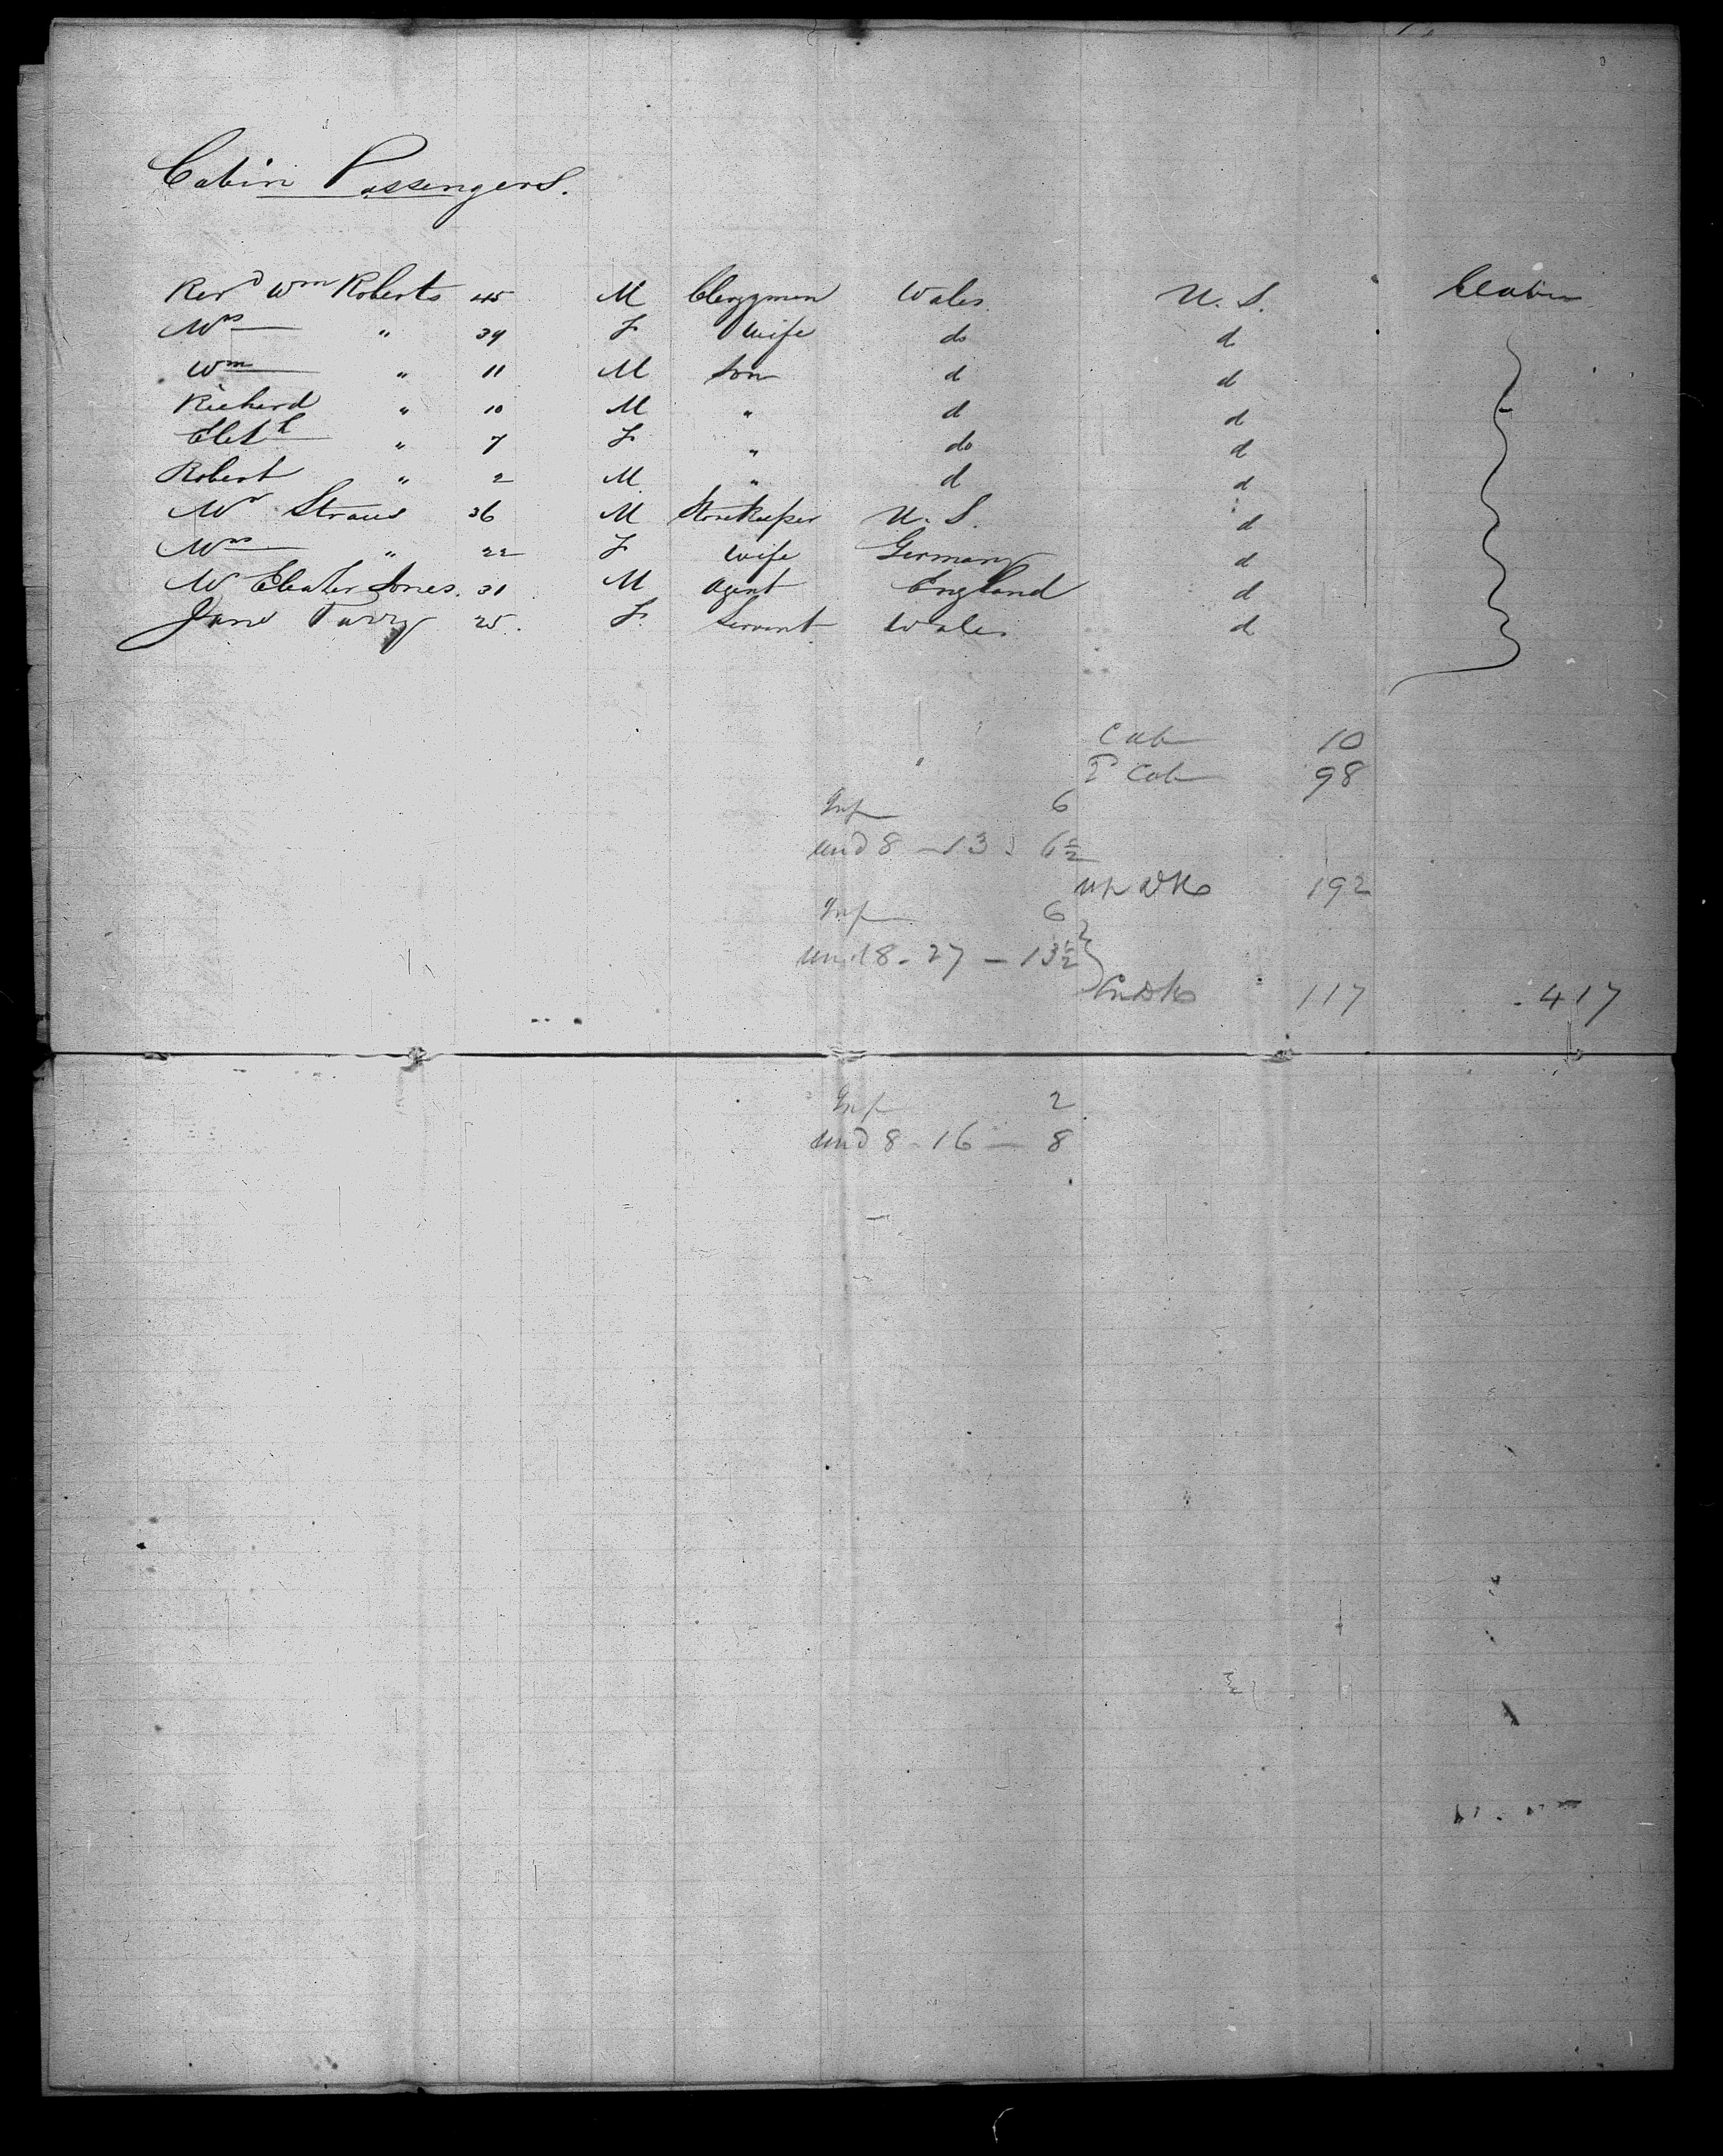 Cabin Passengers.
Revd Wm Roberts 45 M Clergyman Wales. U. S. Cabin
Mrs " 39 F Wife do d
Wm " 11 M Son d d
Richard " 10 M " d d
Elizth " 7 F " do d
Robert " 2 M " d d
Mr Straus 36 M Storekeeper U. S. d
Mrs " 22 F Wife Germany d
Mr Jones. 31 M Agent England d
Jane Parry 25. F. Servant Wales d
Cab 10
Cab 98
Inf 6
und 8 - 13 - 6½
up Dk 192
Inf 6
und 8 - 27 - 13½
Dk 117 417
Inf 2
und 8 - 16 - 8